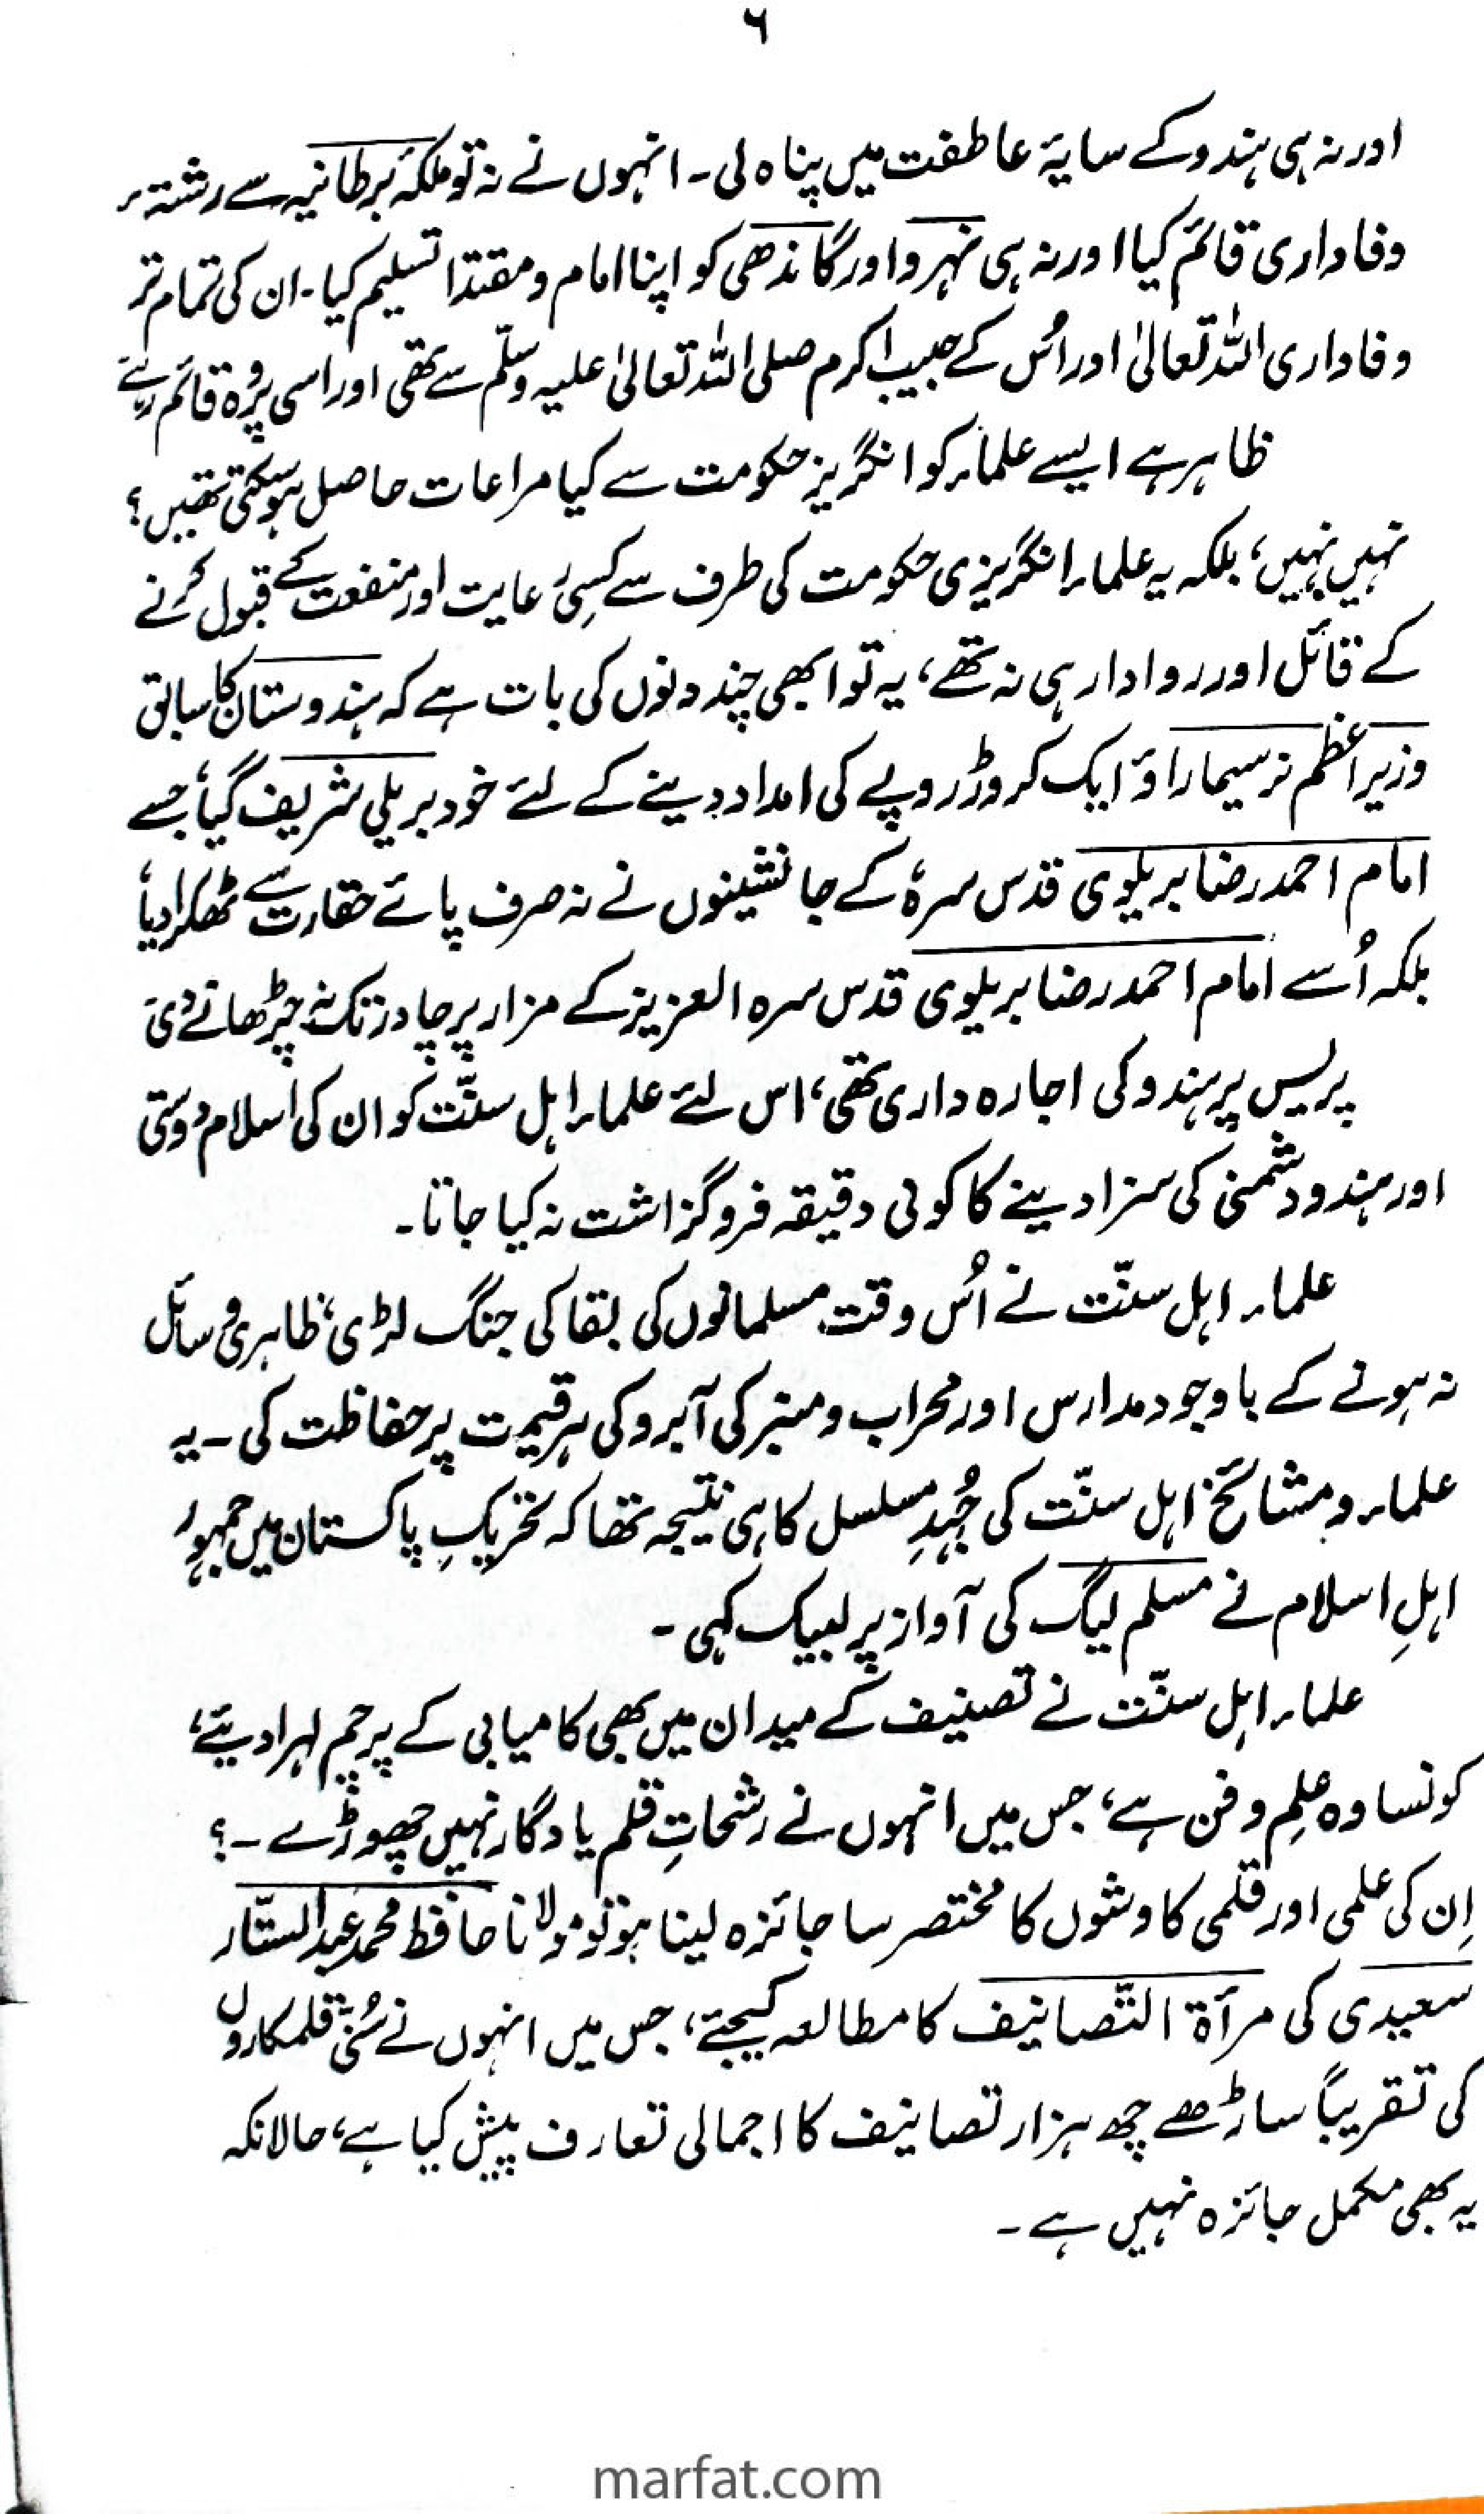 ۶
اور نہ ہی ہندو کے سایۂ عاطفت میں پناہ لی۔ انہوں نے نہ تو ملکۂ برطانیہ سے رشتۂ
وفاداری قائم کیا اور نہ ہی نہرو اور گاندھی کو اپنا امام و مقتدا تسلیم کیا۔ ان کی تمام تر
وفاداری اللہ تعالیٰ اور اُس کے حبیب اکرم صلی اللہ تعالیٰ علیہ وسلّم سے تھی اور اسی پر وُہ قائم رہے
ظاہر ہے ایسے علماء کو انگریز حکومت سے کیا مراعات حاصل ہو سکتی تھیں؟
نہیں نہیں، بلکہ یہ علماء انگریزی حکومت کی طرف سے کسِی رعایت اور منفعت کے قبول کرنے
کے قائل اور روادار ہی نہ تھے، یہ تو ابھی چند دنوں کی بات ہے کہ ہندوستان کا سابق
وزیر اعظم نرسیما راؤ ایک کروڑ روپے کی امداد دینے کے لئے خود بریلی شریف گیا، جسے
امام احمد رضا بریلوی قدس سرہٗ کے جانشینوں نے نہ صرف پائے حقارت سے ٹھکرا دیا،
بلکہ اُسے امام احمد رضا بریلوی قدس سرہ العزیز کے مزار پر چادر تک نہ چڑھانے دی۔
پریس پر ہندو کی اجارہ داری تھی، اس لئے علماء اہل سنّت کو ان کی اسلام دوستی
اور ہندو دشمنی کی سزا دینے کا کوئی دقیقہ فروگزاشت نہ کیا جاتا۔
علماء اہل سنّت نے اُس وقت مسلمانوں کی بقا کی جنگ لڑی، ظاہری وسائل
نہ ہونے کے باوجود مدارس اور محراب و منبر کی آبرو کی ہر قیمت پر حفاظت کی۔ یہ
علماء و مشائخ اہل سنّت کی جُہدِ مسلسل کا ہی نتیجہ تھا کہ تحریکِ پاکستان میں جمہور
اہلِ اسلام نے مسلم لیگ کی آواز پر لبیک کہی۔
علماء اہل سنّت نے تصنیف کے میدان میں بھی کامیابی کے پرچم لہرا دیئے،
کونسا وہ علمِ و فن ہے، جس میں انہوں نے رشحاتِ قلم یادگار نہیں چھوڑے۔؟
اِن کی علمی اور قلمی کاوشوں کا مختصر سا جائزہ لینا ہو تو مولانا حافظ محمد عبدالستّار
سعیدی کی مرأۃ التّصانیف کا مطالعہ کیجئے، جس میں انہوں نے سُنّی قلمکاروں
کی تقریباً ساڑھے چھ ہزار تصانیف کا اجمالی تعارف پیش کیا ہے، حالانکہ
یہ بھی مکمل جائزہ نہیں ہے۔
marfat.com